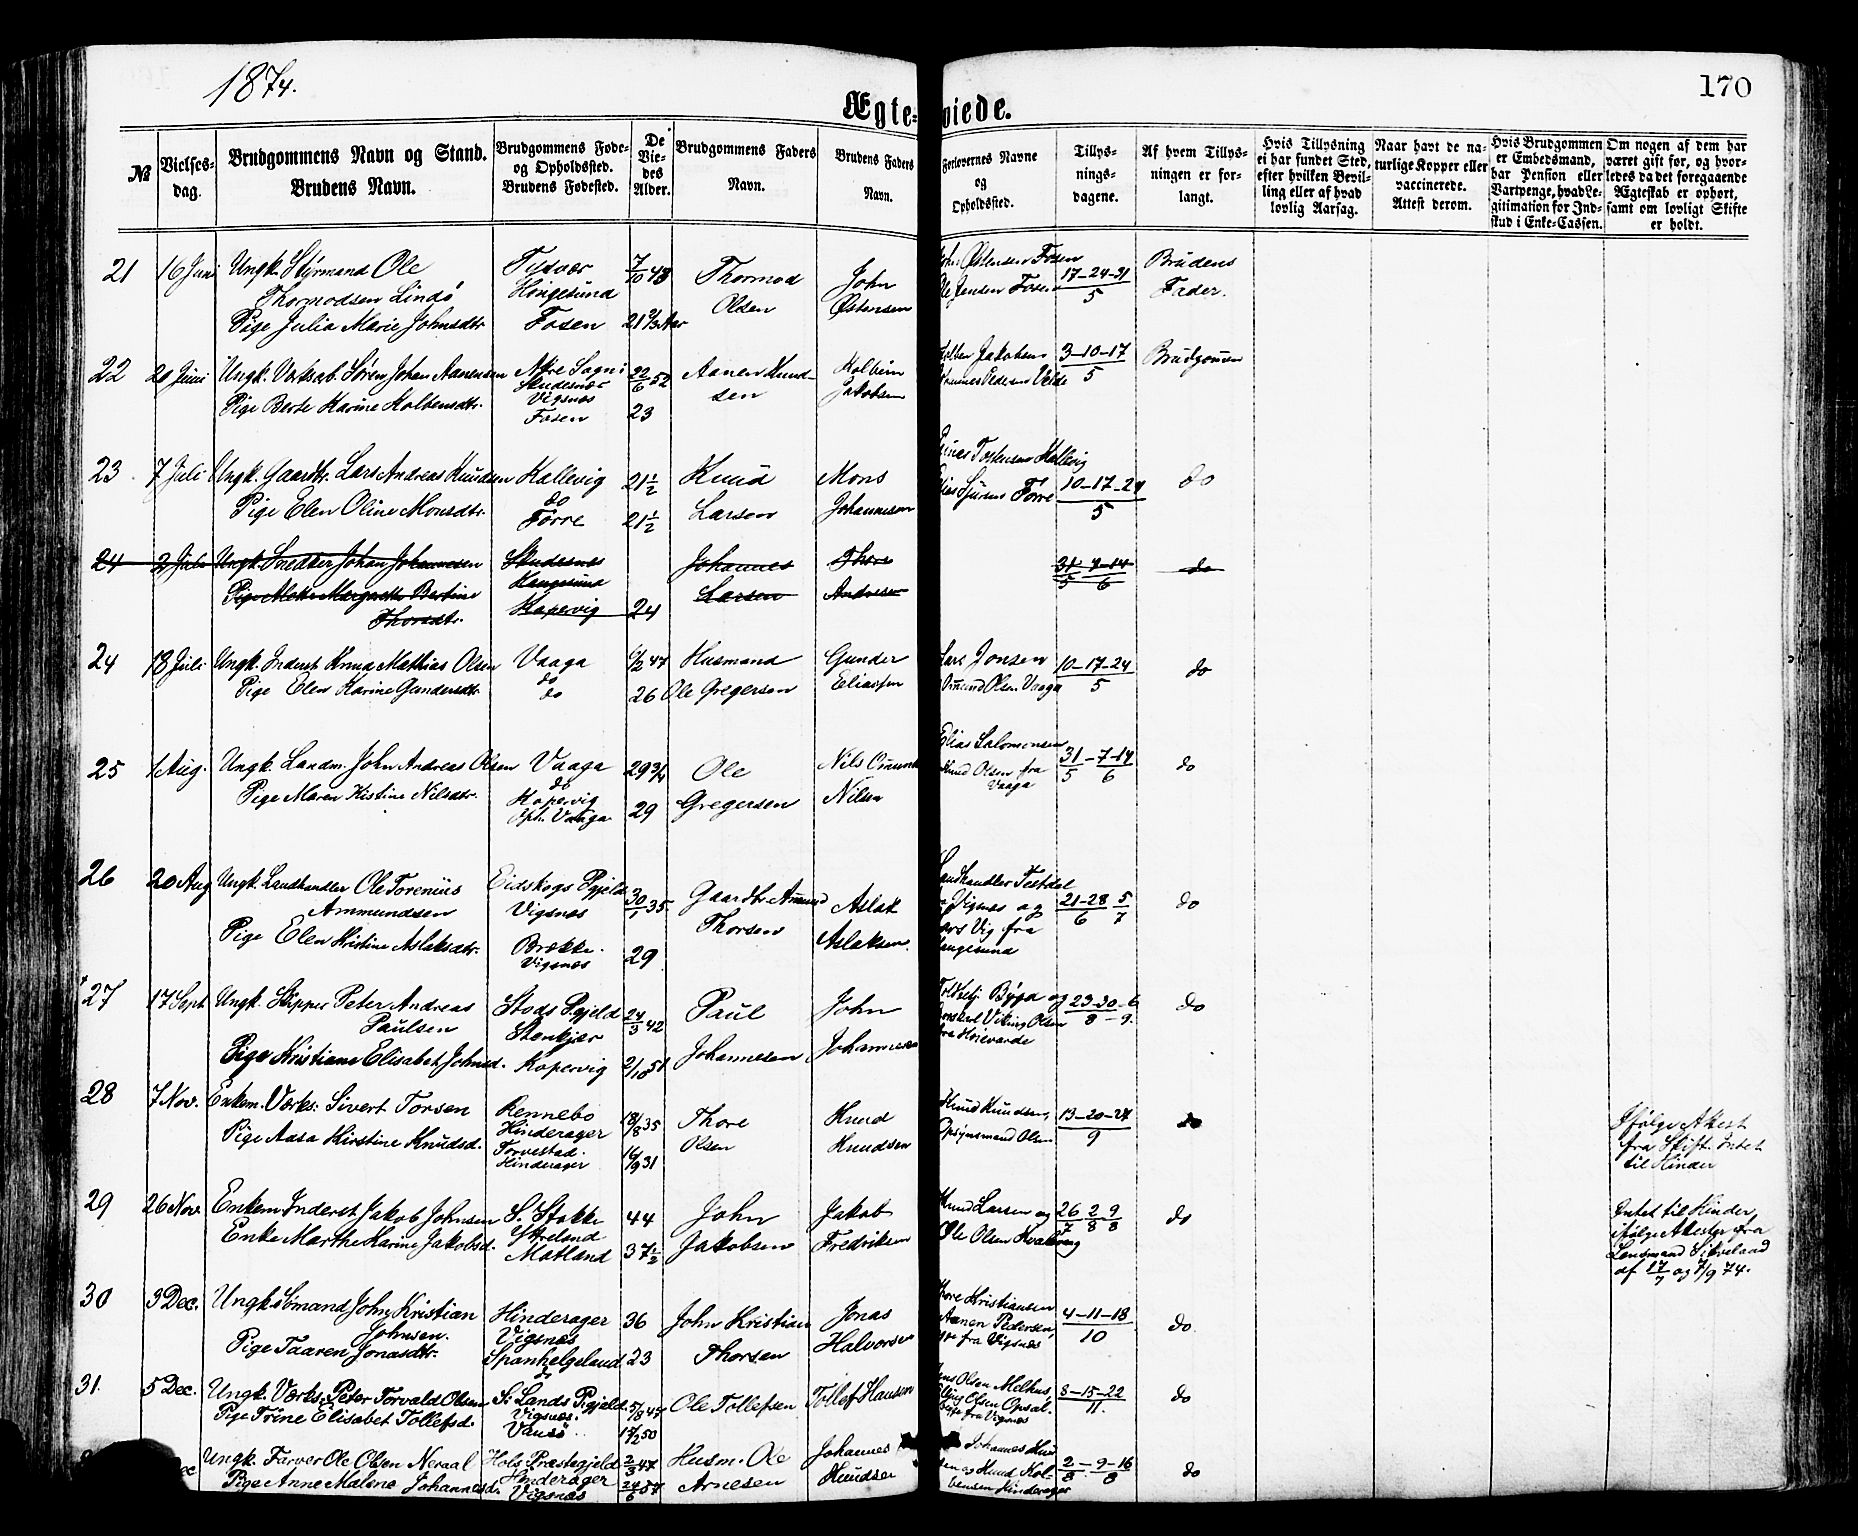 1874.
170
Ægte- viede.
№
Vielses-dag.
Brudgommens Navn og Stand. Brudens Navn.
Brudgommens Føde- og Opholdssted. Brudens Fødested.
De Vie-des Alder.
Brudgommens Faders Navn.
Brudens Faders Navn.
Forlovernes Navne og Opholdssted.
Tillys-nings-dagene.
Af hvem Tillys-ningen er for-langt.
Hvis Tillysning ei har fundet Sted, efter hvilken Bevil-ling eller af hvad lovlig Aarsag.
Naar havt de na-turlige Kopper eller vaccinerede. Attest derom.
Hvis Brudgommen er Embedsmand, har Pension eller Vartpenge, hvad Le-gitimation for Ind-skud i Enke-Cassen.
Om nogen af dem har været gift før, og hvor-ledes da det foregaaende Ægteskab er ophørt, samt om lovligt Skifte er holdt.
21 16 Juni Ungk. Styrmand Ole Tidvær 7/10 48 Thormod John Østensen Fosen 17-24-31 Brudens
Thormodsen Lindö Høigesund Olsen Østensen Ole Jensen Fosen 5 Fader.
Pige Julia Marie Johnsdtr. Fosen 21 2/3 Aar
22 20 Juni Ungk. Verksab. Sören Johan Aanensen Nöre Sogn: 22/6 52 Aanen Knud- Kolbein Jakobsen 3-10-17 Brudgomen
Skudesnæs sen Jakobsen Pedersen 5
Pige Berte Karine Kolbensdtr. Vigsnæs
Fosen 23
23 7 Juli Ungk. Gaardbr. Lars Andreas Knudsen Kallevig 21 1/2 Knud Mons Tostensen Kallevig 10-17-24 do
do
Pige Elen Oline Monsdtr. Førre 21 1/2 Larsen Johannesen Førre 5
24 2 Juli Ungk. Snedker Johan Johannesen Skudesnes Johannes Thore 31-7-14 do
Haugesund 5 6
Pige Mette Margrethe Bertine Kopervig 24 Larsen Andresen
Thorsdtr.
24 18 Juli Ungk. Inderst Knud Mathias Olsen Vaaga 47 Husmand Gunder Lars Jonsen 10-17-24 do
do
Pige Elen Karine Gundersdtr. do 26 Ole Gregersen Eliassen Omund Olsen Vaaga 5
25 1 Aug. Ungk. Landm. John Andreas Olsen Vaaga 29 3/4 Ole Nils Omund Elias Salomonsen 31-7-14 do
do
Pige Maren Kistine Nilsdtr. Kopervig 29 Gregersen Nilsen Knud Olsen fra 5 6
Oph. Vaaga Vaaga
26 20 Aug Ungk. Landhandler Ole Torenius Eidskogs Pgjeld 30/1 35 Gaardbr. Amund Aslak Landhandler Testdal 21-28 5 do
Ammundsen Vigsnæs Thorsen Aslaksen. Vigsnæs og 6 7
Pige Elen Kristine Aslaksdtr. Brække. 29 Lars Vig fra
Vigsnæs Haugesund
27 17 Sept. Ungk. Skipper Peter Andreas Stods Pgjeld 24/3 42 Paul John Bÿga og 23-30-6 do
Paulsen Stenkjær Viking Olsen 8-9.
Pige Kristiane Elisabet Johnsd. Kopervig 2/10 51 Johannesen Johannesen fra Høievarde
28 7 Nov. Enkem. Værks: Sivert Torsen Rennebo 18/8 35 Thore Knud Knud Knudsen, 13-20-27 do Ifølge Atest
Hinderager fra Skift. Intet
Pige Aasa Kirstine Knudsd. Torvestad. 16/9 31 Olsen Knudsen Opsynsmand Olsen 9 til Hinder
Hinderager
29 26 Nov. Enkem. Inderst Jakob Johnsen S. Stokke 44 John Jakob Knud Larsen og 26 2 9 do Intet til Hinder
Ytreland 7 8 8 ifølge Atester fra
Enke Marthe Karine Jakobsd. Matland 37 1/2 Jakobsen Fredriksen Ole Olsen Kvalevaag Lensmand Sikveland
af 17/7 og 7/9 74.
30 3 Dec. Ungk. Sømand John Kristian Hinderager 36 John Kristian Jonas Tore Kristiansen 4-11-18 do
Johnsen. Vigsnæs Aanen Pedersen, 10
Pige Taaren Jonasdtr. Spanhelgeland 23 Thorsen Halvorsen fra Vigsnæs
do
31. 5 Dec. Ungk. Værks. Peter Torvald Olsen S: Lands Pgjeld. 5/8 47 Ole Tollefsen Tollef Hansen Jens Olsen Melhus, 8-15-22 do
Vigsnæs. Olsen Opsal. 11.
Pige Trine Elisabet Tollefsd. Vansø 12/2 50 fra Vigsnæs
Ungk. Farver Ole Olsen Neraal Hols Præstegjeld 2/3 47 Husm. Ole Johannes Johannes Knud 2-9-16 do
Hinderager sen og Knud Kol- 8. 8
Pige Anne Malene Johannesd. Vigsnæs 24/6 57 Arnesen Knudsen bensen Hinderager